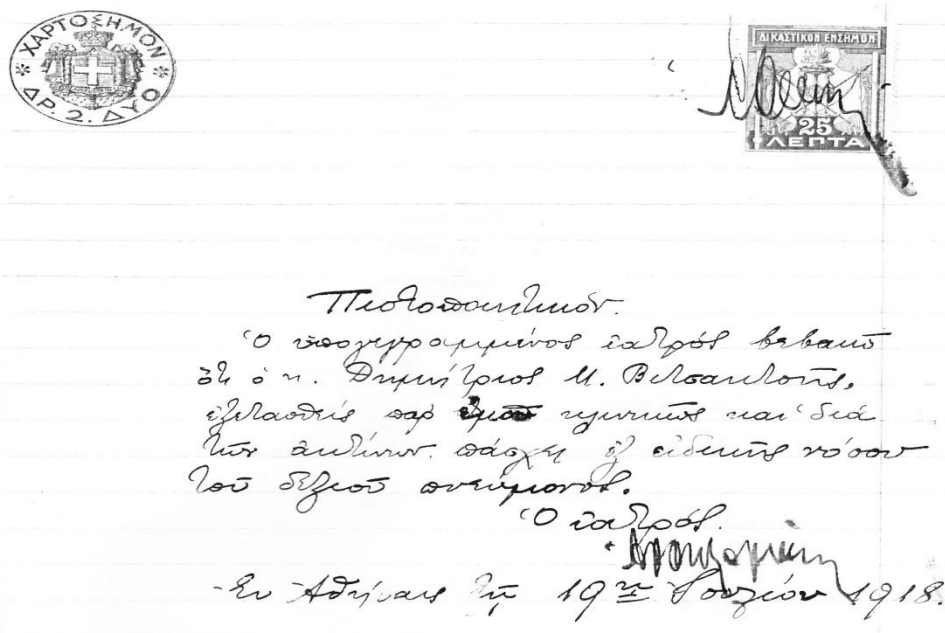 ΧΑΡΤΟΣΗΜΟΝ
ΔΡ. 2. ΔΥΟ
ΔΙΚΑΣΤΙΚΟΝ ΕΝΣΗΜΟΝ
25
ΛΕΠΤΑ
Πιστοποιητικόν.
Ὁ ὑπογεγραμμένος ἰατρός βεβαιῶ
ὅτι ὁ κ. Δημήτριος Μ. Βιτσακτσῆς,
ἐξετασθείς παρ ἐμοῦ κλινικῶς καί διά
τῶν ἀκτίνων. πάσχει ἐξ εἰδικῆς νόσου
τοῦ δεξιοῦ πνεύμονος.
Ὁ ἰατρός.
Ἐν Ἀθήναις τῇ 19ῃ Ἰουλίου 1918.